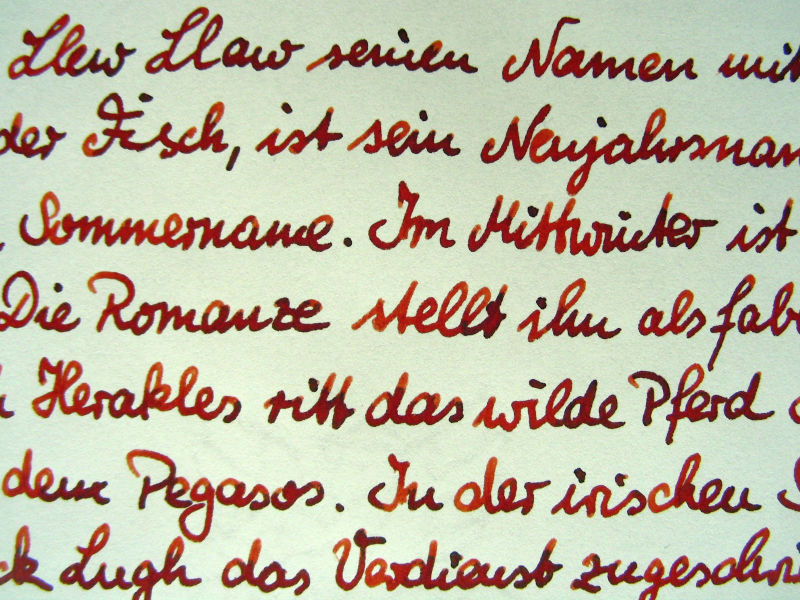 Llew Llaw seinen Namen mit
der Fisch, ist sein Neujahrsnam
, Sommername. Im Mittwinter ist
Die Romanze stellt ihn als fab
Herakles ritt das wilde Pferd
dem Pegasos. In der irischen
ck Lugh das Verdienst zugeschri